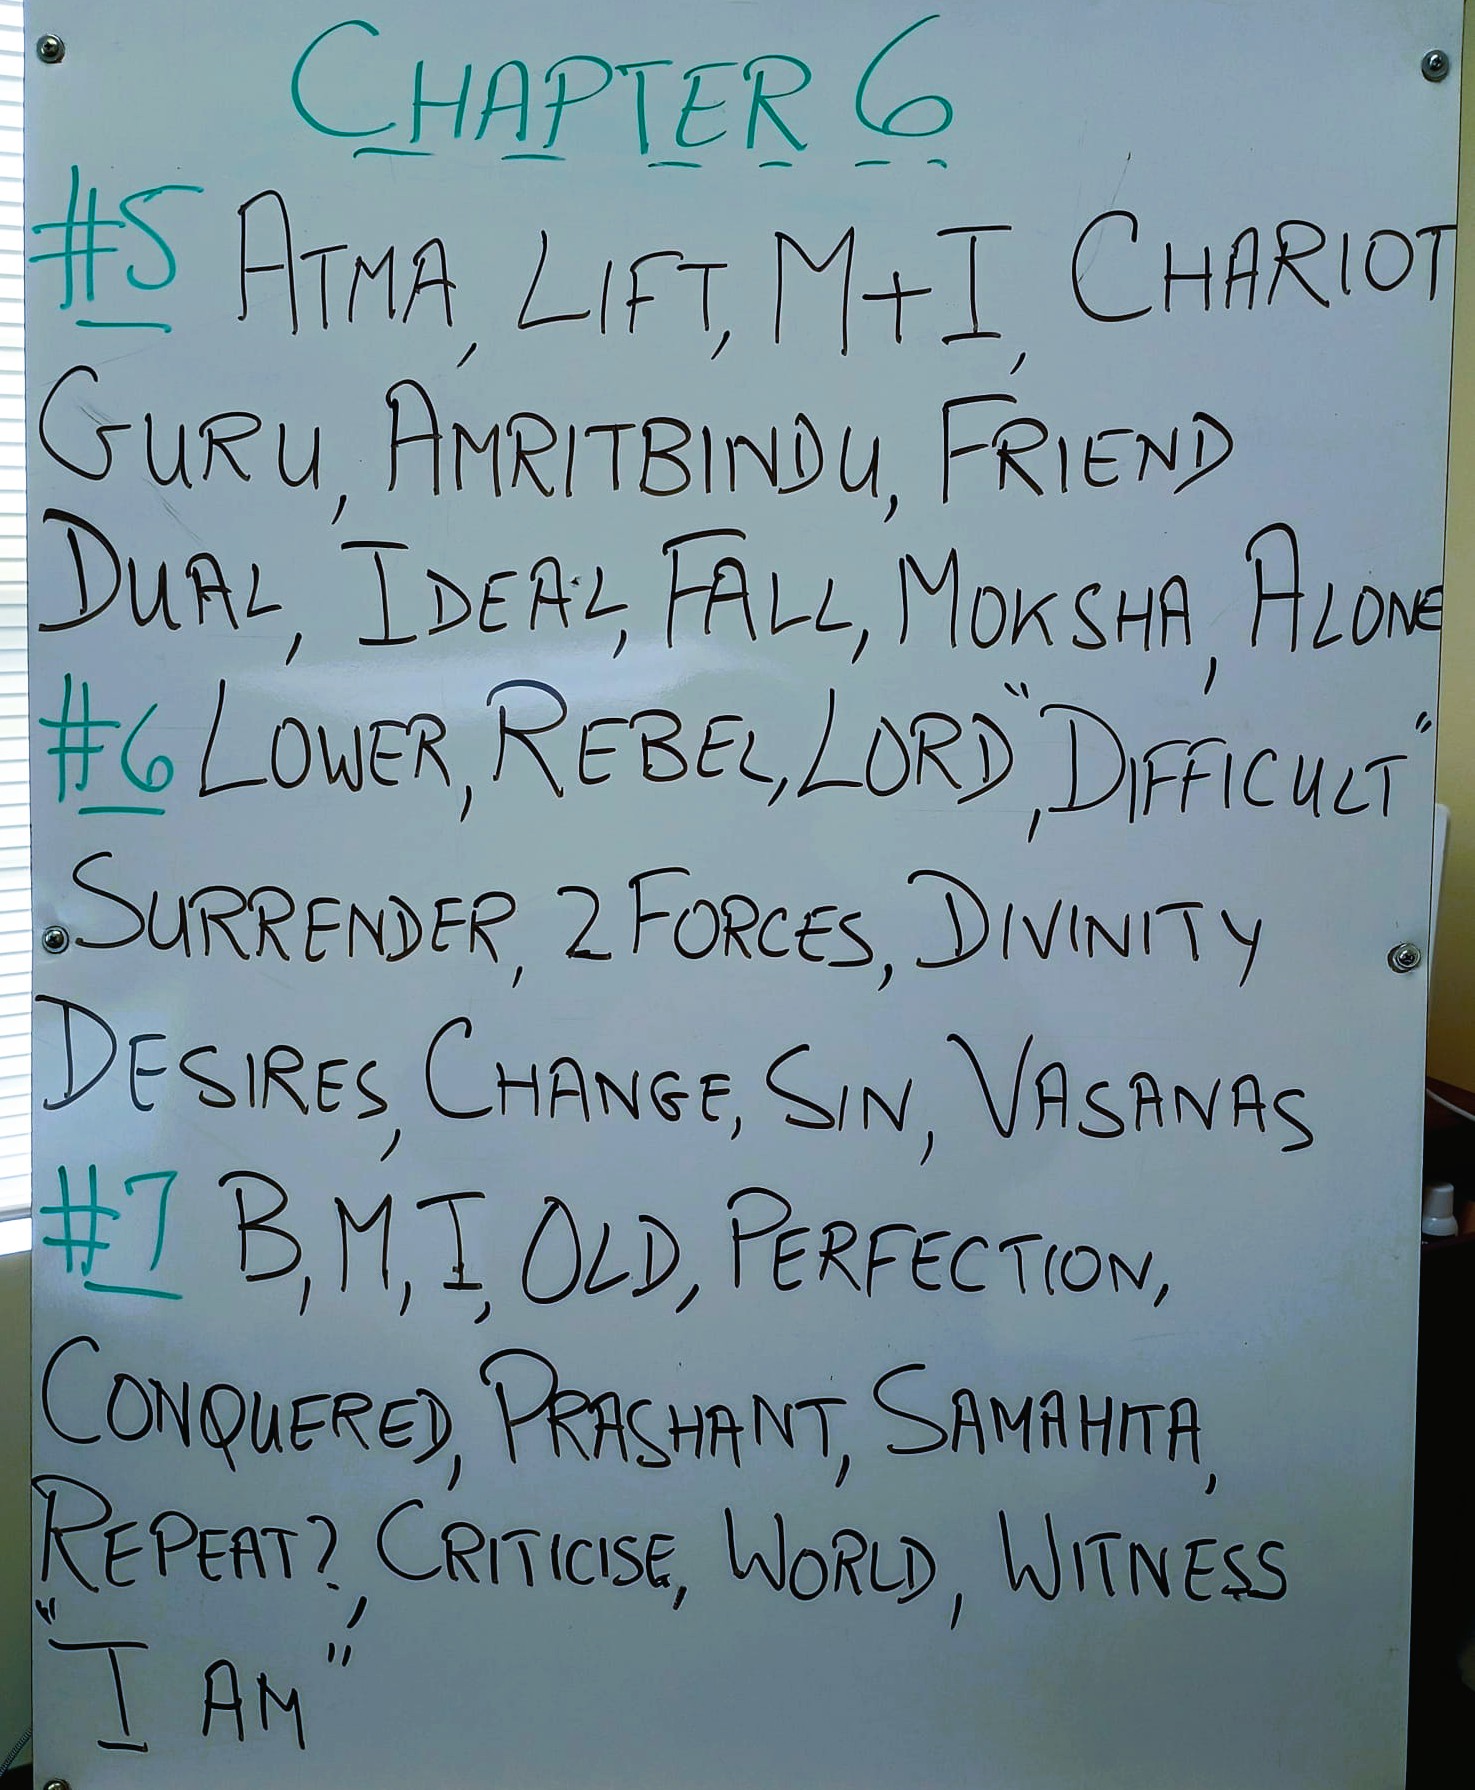 CHAPTER 6
#5 ATMA, LIFT, M+I, CHARIOT
GURU, AMRITBINDU, FRIEND
DUAL, IDEAL, FALL, MOKSHA, ALONE
#6 LOWER, REBEL, LORD, "DIFFICULT"
SURRENDER, 2 FORCES, DIVINITY
DESIRES, CHANGE, SIN, VASANAS
#7 B, M, I, OLD, PERFECTION,
CONQUERED, PRASHANT, SAMAHITA,
REPEAT?, CRITICISE, WORLD, WITNESS
"I AM"